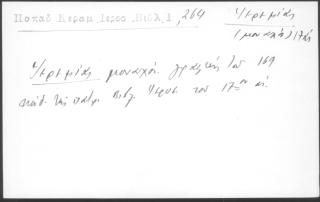 Παπαδ. Κεραμ. Ιεροσ. Βιβλ. 1, 264
Ιερεμίας
(μοναχός) 17ος
Ιερεμίας μοναχός. γραφεύς του 169
κωδ. της πατρ. βιβλ. Ιερουσ. του 17ου αι.